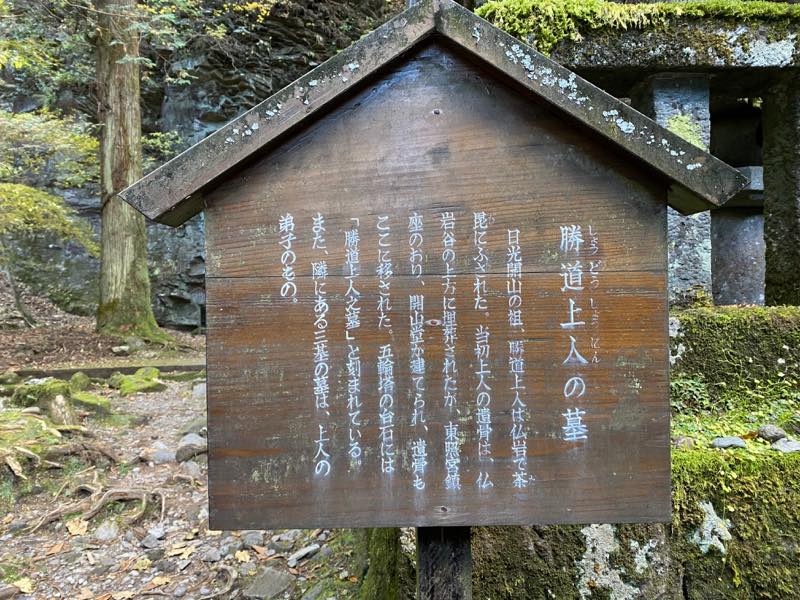 勝道上人の墓
しょうどうしょうにん
日光開山の祖、勝道上人は仏岩で荼
だ
毘にふされた。当初上人の遺骨は、仏
び
岩谷の上方に埋葬されたが、東照宮鎮
座のおり、開山堂が建てられ、遺骨も
ここに移された。五輪塔の台石には
「勝道上人之墓」と刻まれている。
また、隣にある三基の墓は、上人の
弟子のもの。